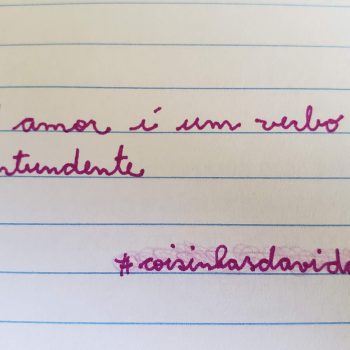 amor é um verbo
ntundente
#coisinhasdavida